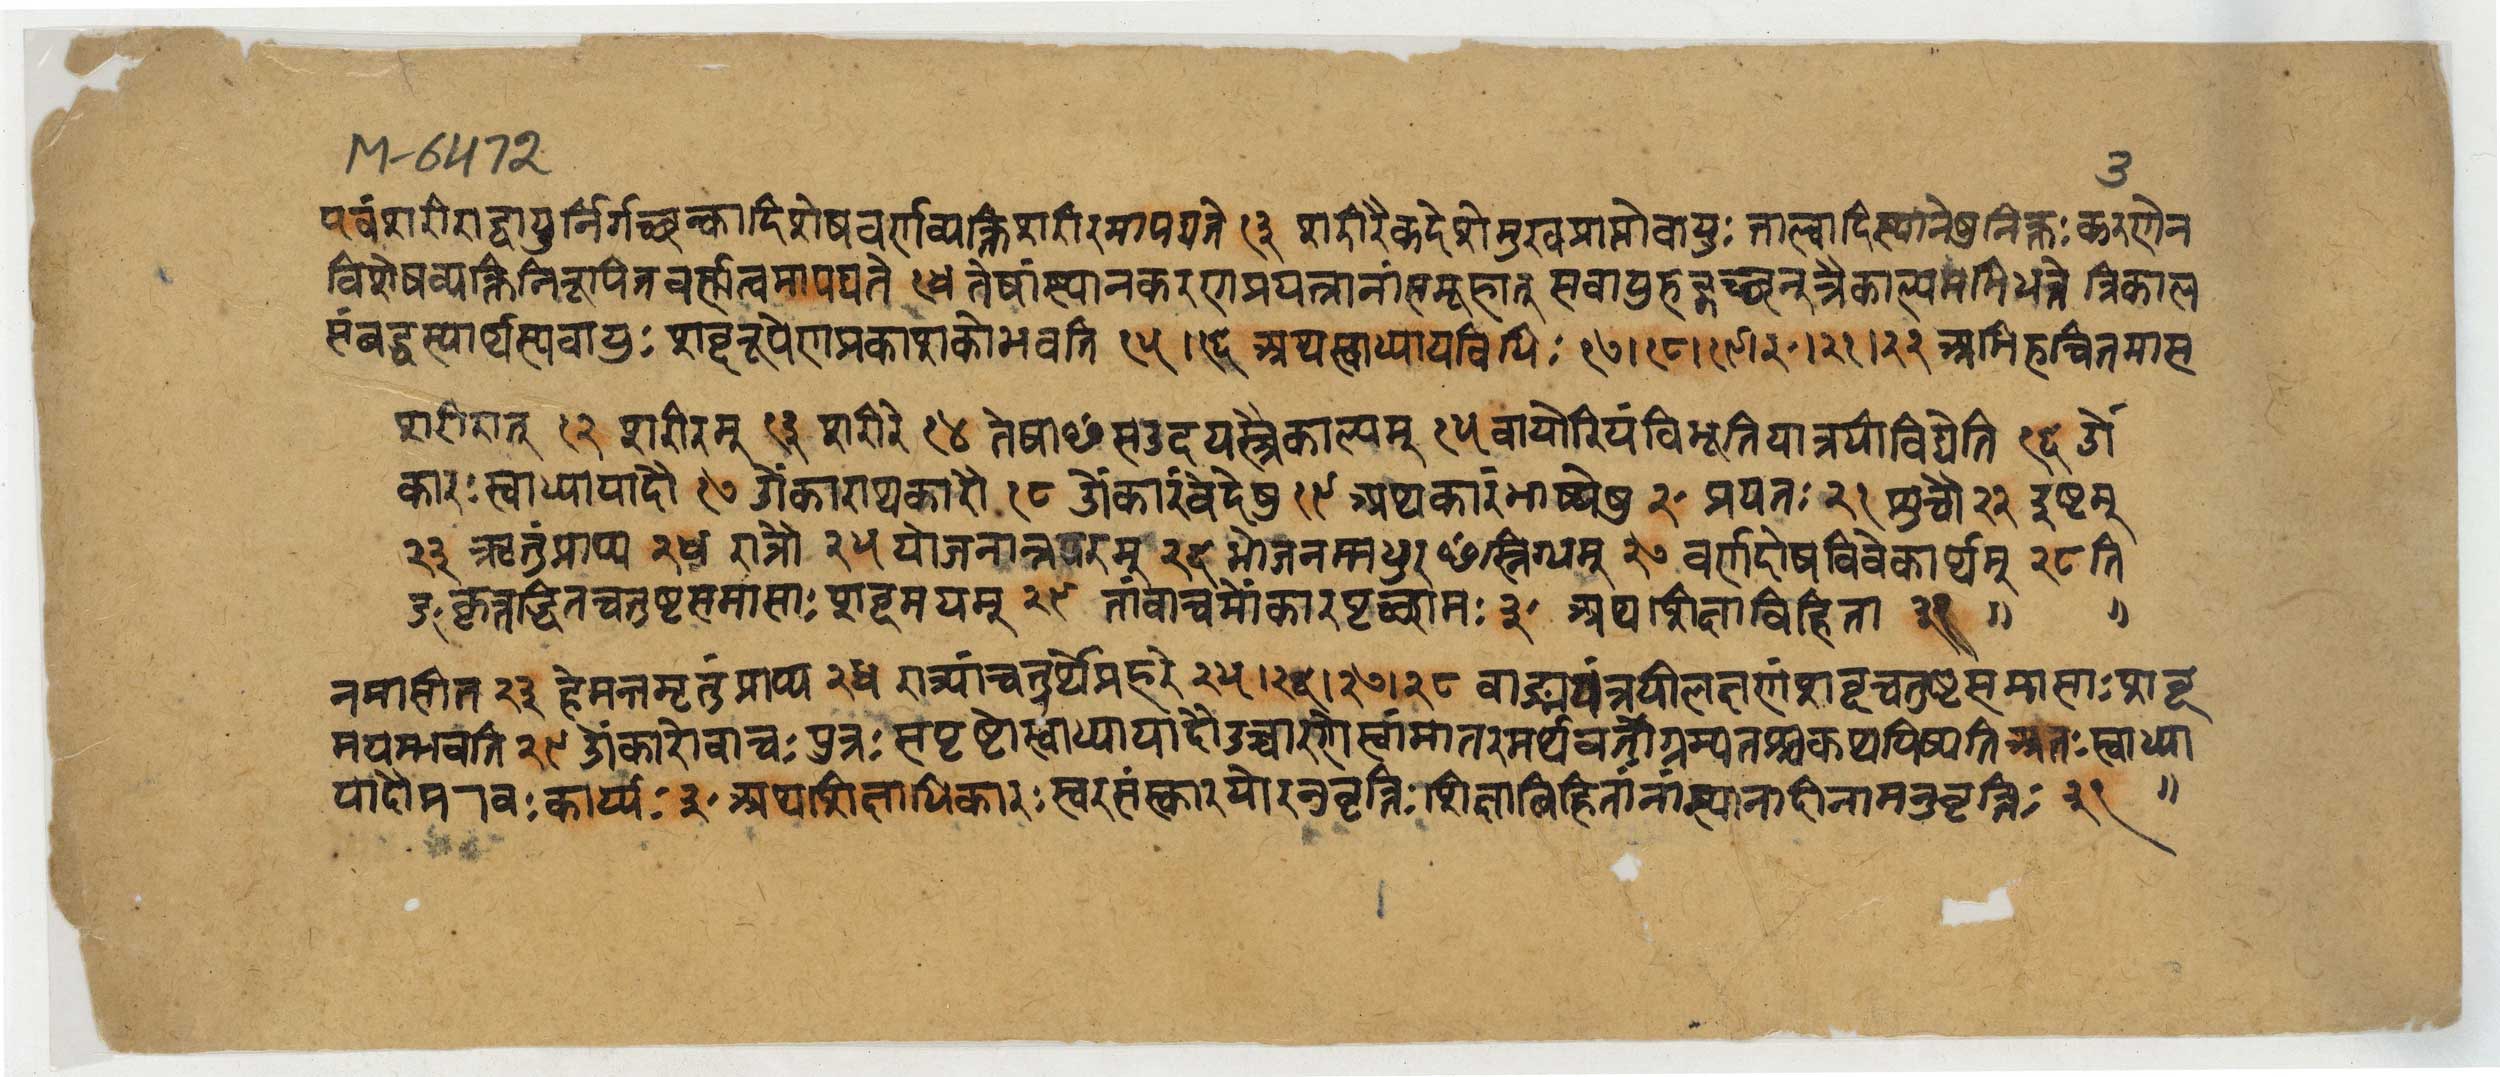 M-6472
3
पवंशरीराद्वायुर्निर्गच्छन्कादिशेषवर्णव्यक्तिशरीरमापद्यते १३ शरीरैकदेशेमुखप्राप्तोवायुः ताल्वादिस्थानेषुनिक्तः करणेन
विशेषव्यक्तिनिरूपितवर्णत्वमापद्यते १४ तेषांस्थानकरणप्रयत्नानांसमूहात् सवायुर्हृ त्रैकाल्यमभिधत्ते त्रिकाल
संबद्धस्यार्थस्यवायुः शब्दरूपेणप्रकाशकोभवति १५।१६ अथस्वाध्यायविधिः १७।१८।१९।२०।२१।२२ अभिहन्वितमास
शरीरात् १२ शरीरम् १३ शरीरे १४ तेषाᳬसउदयस्त्रैकाल्यम् १५ वायोरियंविभूतियात्रयीविद्येति १६ ॐ
कारः स्वाध्यायादौ १७ ॐकाराथकारौ १८ ॐकारंवेदेषु १९ अथकारंभाष्येषु २० प्रयतः २१ शुचौ २२ इष्टम्
२३ ऋतुंप्राप्य २४ रात्रौ २५ योजनान्नपरम् २६ भोजनम्मधुरᳬस्निग्धम् २७ वर्णदोषविवेकार्थम् २८ ति
ङ्कृत्तद्धितचतुष्टसमासाः शब्दमयम् २९ तांवाचमोंकारपृच्छामः ३० अथशिक्षाविहिता ३१ ॥ ॥
नमासीत २३ हेमन्तमृतुंप्राप्य २४ रात्र्यांचतुर्थेप्रहरे २५।२६।२७।२८ वाङ्मयंत्रयीलक्षणंशब्दचतुष्टेसमासाः शब्द
मयम्भवति २९ ॐकारोवाचः पुत्रः सपृष्टोस्वाध्यायादौउच्चारणेस्वांमातरमर्थवर्तीगम्यतश्चकथयिष्यति अतः स्वाध्या
यादौप्रणवः कार्य्यः ३० अथशिक्षाधिकारः स्वरसंस्कारयोरनुवृत्तिः शिक्षाविहितांनांस्थानादीनामनुवृत्तिः ३१ ॥